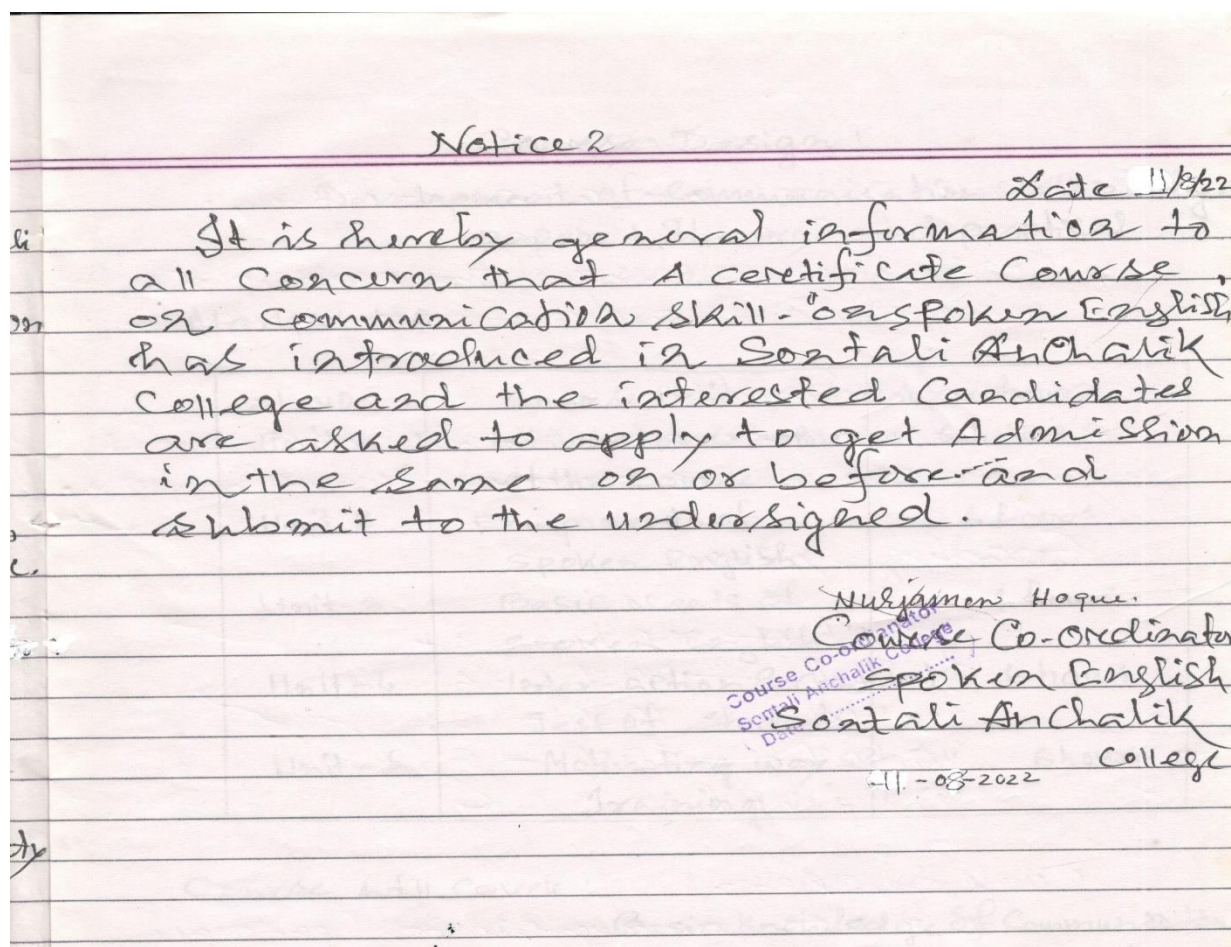 Notice 2
Date 11/8/22
It is hereby general information to
all Concern that A ceretificate Course
on communication skill - "on spoken English
has introduced in Sontali Anchalik
College and the interested Candidates
are asked to apply to get Admission
in the same on or before and
submit to the undersigned.
Nurjamon Hoque.
Course Co-oredinator
Spoken English
Sontali Anchalik
College
11-08-2022
Course Co-ordinator
Sontali Anchalik College
Date
li
on
c.
ty